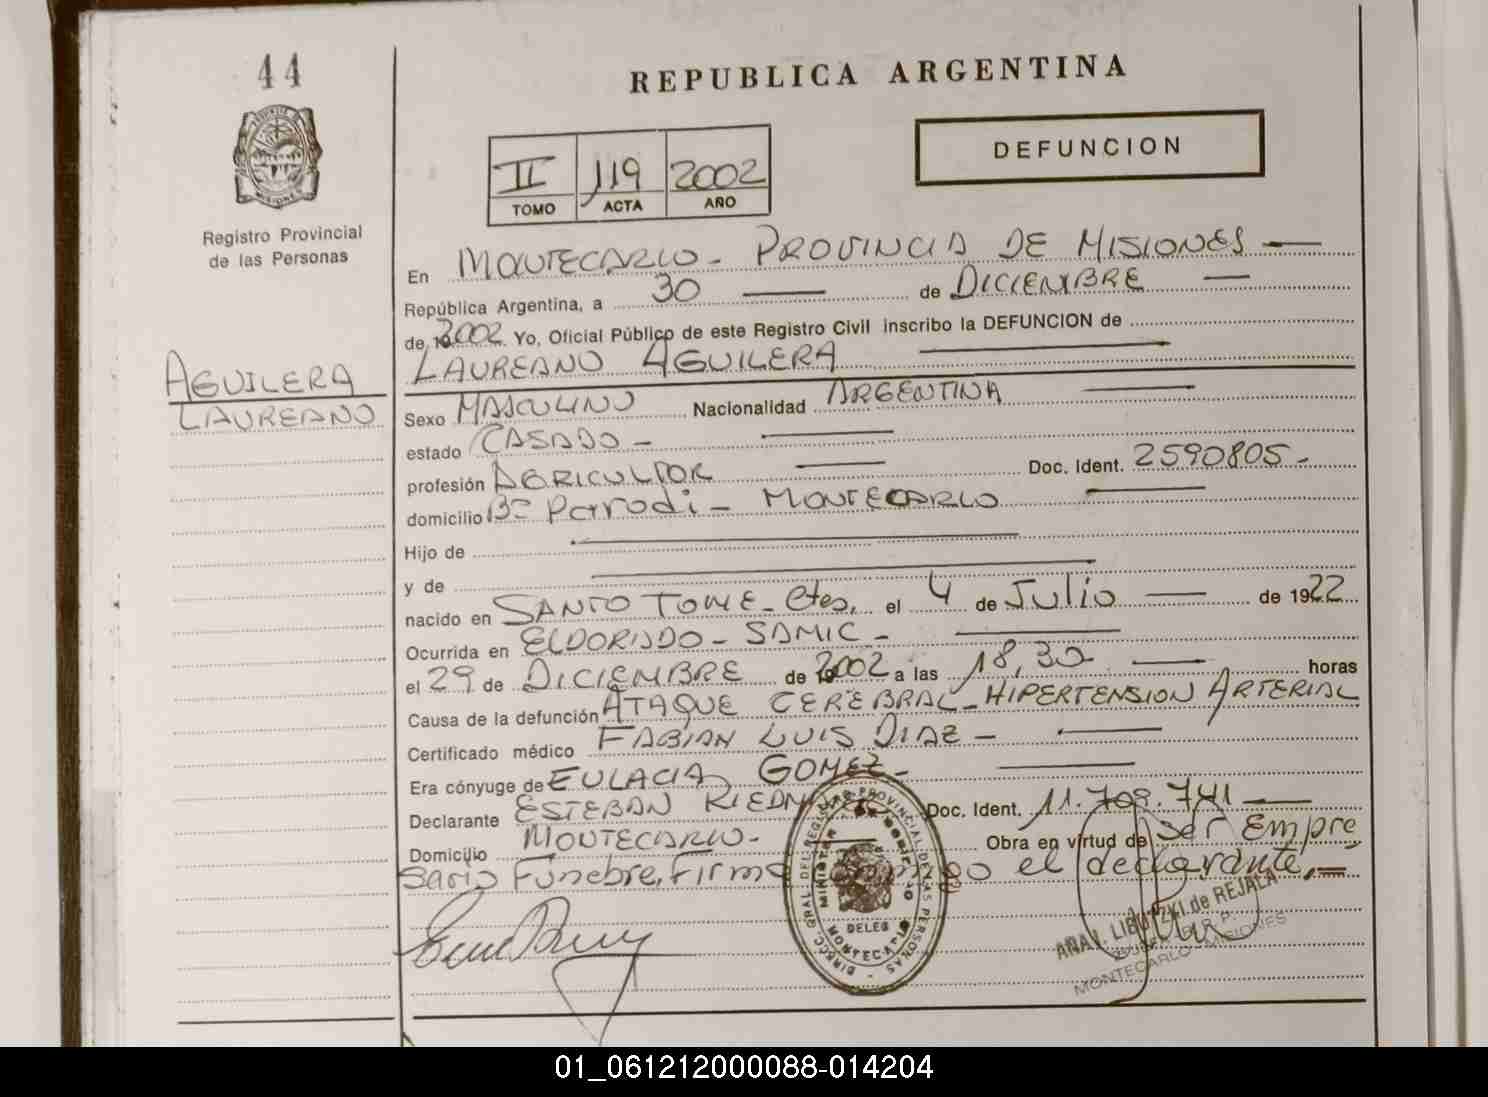 44
REPUBLICA ARGENTINA
II 119 2002
TOMO ACTA AÑO
DEFUNCION
Registro Provincial
de las Personas
En MONTECARLO - PROVINCIA DE MISIONES
República Argentina, a 30 de DICIEMBRE
de 2002 Yo, Oficial Público de este Registro Civil inscribo la DEFUNCION de
LAUREANO AGUILERA
AGUILERA
LAUREANO
Sexo MASCULINO Nacionalidad ARGENTINA
estado CASADO -
profesión AGRICULTOR Doc. Ident. 2590805 -
domicilio Bº Parodi - MONTECARLO
Hijo de
y de
nacido en SANTO TOME - Ctes, el 4 de Julio de 1922
Ocurrida en ELDORADO - SAMIC -
el 29 de DICIEMBRE de 2002 a las 18,30 horas
Causa de la defunción ATAQUE CEREBRAL - HIPERTENSION ARTERIAL
Certificado médico FABIAN LUIS DIAZ -
Era cónyuge de EULACIA GOMEZ -
Declarante ESTEBAN Doc. Ident. 11.709.741
Domicilio MONTECARLO - Obra en virtud de Ser Empre
sario Funebre, Firma el declarante, =
DIRECC. GRAL DEL REGISTRO PROVINCIAL DE LAS PERSONAS
DELEG
MONTECARLO
ANA L. LIBUTZKI de REJALA
MONTECARLO - MISIONES
01_061212000088-014204